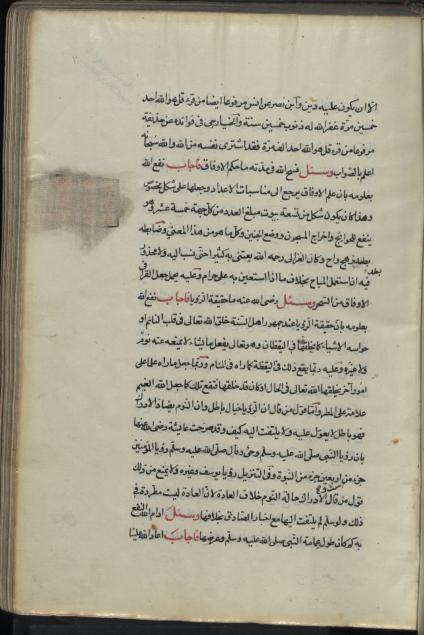 الا ان يكون عليه دين وابن نصر عن انس مرفوعا ايضا من قرء قل هو الله احد
خمسين مرة غفر الله له ذنوب خمسين سنة والخيارجى فى فوائده عن حذيفة
مرفوعا من قرء قل هو الله احد الف مرة فقد اشترى نفسه من الله والله سبحانه
اعلم بالصواب وسئل فسح الله فى مدته ما حكم الاوفاق فاجاب نفع الله
بعلومه بان علم الاوفاق يرجع الى مناسبات الاعداد وجعلها على شكل مخصوص
وهذا كان يكون شكل من تسعة بيوت مبلغ العدد من كل جهة خمسة عشر وهو
ينفع للحوائج واخراج المسجون ووضع الجنين وكل ما هو من هذا المعنى وضابطه
بطد زهج واح وكان الغزالى رحمه الله يعتنى به كثيرا حتى نسب اليه ولا محذور
فيه ان استعمل لمباح بخلاف ما اذا استعين به على حرام وعليه يحمل جعل القرافى
الاوفاق من السحر وسئل رضى الله عنه ما حقيقة الرؤيا فاجاب نفع الله
بعلومه بان حقيقة الرؤيا عند جمهور اهل السنة خلق الله تعالى فى قلب النائم او
حواسه الاشياء كما يخلقها فى اليقظان وهو تعالى يفعل ما يشاء لا يمنعه عنه نوم
ولا غيره وعليه ربما يقع ذلك فى اليقظة كما راه فى المنام وربما جعل ما راه علما على
امور اخر يخلقها الله تعالى فى الحال او كان قد خلقها فتقع تلك كما جعل الله الغيم
علامة على المطر واما قول من قال ان الرؤيا خيال باطل وان النوم يضاد الادراك
فهو باطل لا يعول عليه ولا يلتفت اليه كيف وقد صرحت عائشة رضى الله عنها
بان رؤيا النبى صلى الله عليه وسلم وحى وقال صلى الله عليه وسلم رؤيا المؤمنين
جزء من اربعين جزء من النبوة وفى التنزيل رؤيا يوسف وغيره ولا يمنع من ذلك
قول من قال الادراك حالة النوم خلاف العادة لان العادة ليست مطردة فى
ذلك ولو سلم لم يلتفت اليها مع اخبار الصادق بخلافها وسئل ادام الله النفع
به كم كان طول عمامة النبى صلى الله عليه وسلم وعرضها فاجاب اعاد الله علينا